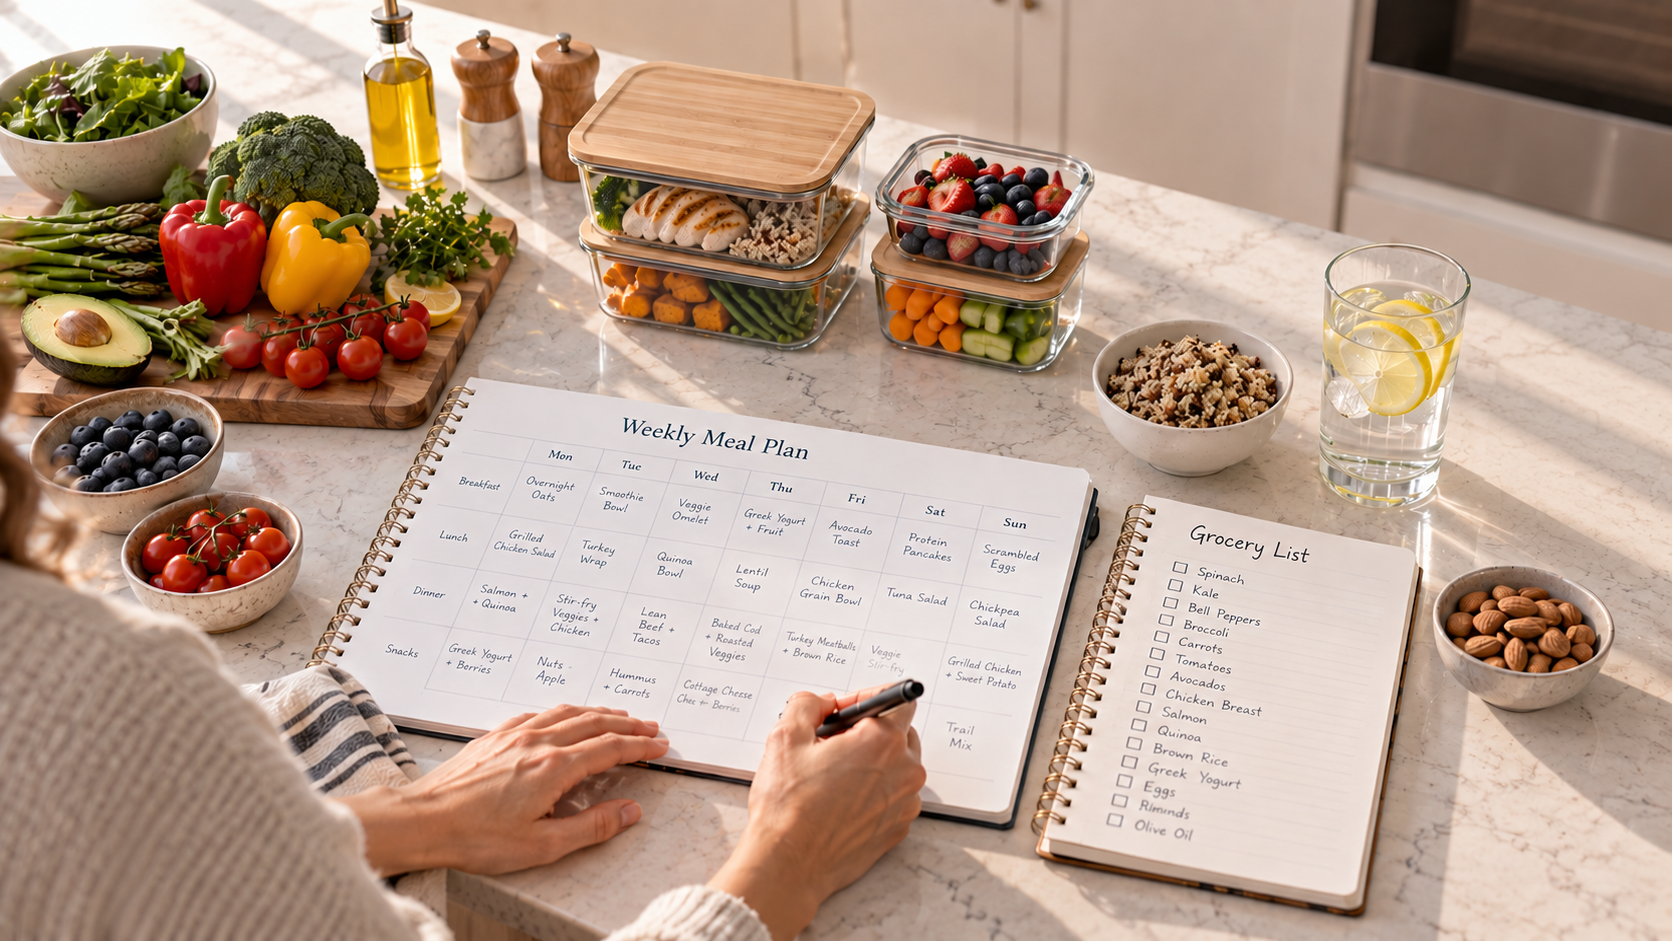 Weekly Meal Plan
Mon Tue Wed Thu Fri Sat Sun
Breakfast
Overnight
Oats
Smoothie
Bowl
Veggie
Omelet
Greek Yogurt
+ Fruit
Avocado
Toast
Protein
Pancakes
Scrambled
Eggs
Lunch
Grilled
Chicken Salad
Turkey
Wrap
Quinoa
Bowl
Lentil
Soup
Chicken
Grain Bowl
Tuna Salad
Chickpea
Salad
Dinner
Salmon +
+ Quinoa
Stir-fry
Veggies +
Chicken
Lean
Beef +
Tacos
Baked Cod
+ Roasted
Veggies
Turkey Meatballs
+ Brown Rice
Veggie
Stir-fry
Grilled Chicken
+ Sweet Potato
Snacks
Greek Yogurt
+ Berries
Nuts -
Apple
Hummus
+ Carrots
Cottage Cheese
Berries
Trail
Mix
Grocery List
Spinach
Kale
Bell Peppers
Broccoli
Carrots
Tomatoes
Avocados
Chicken Breast
Salmon
Quinoa
Brown Rice
Greek Yogurt
Eggs
Olive Oil